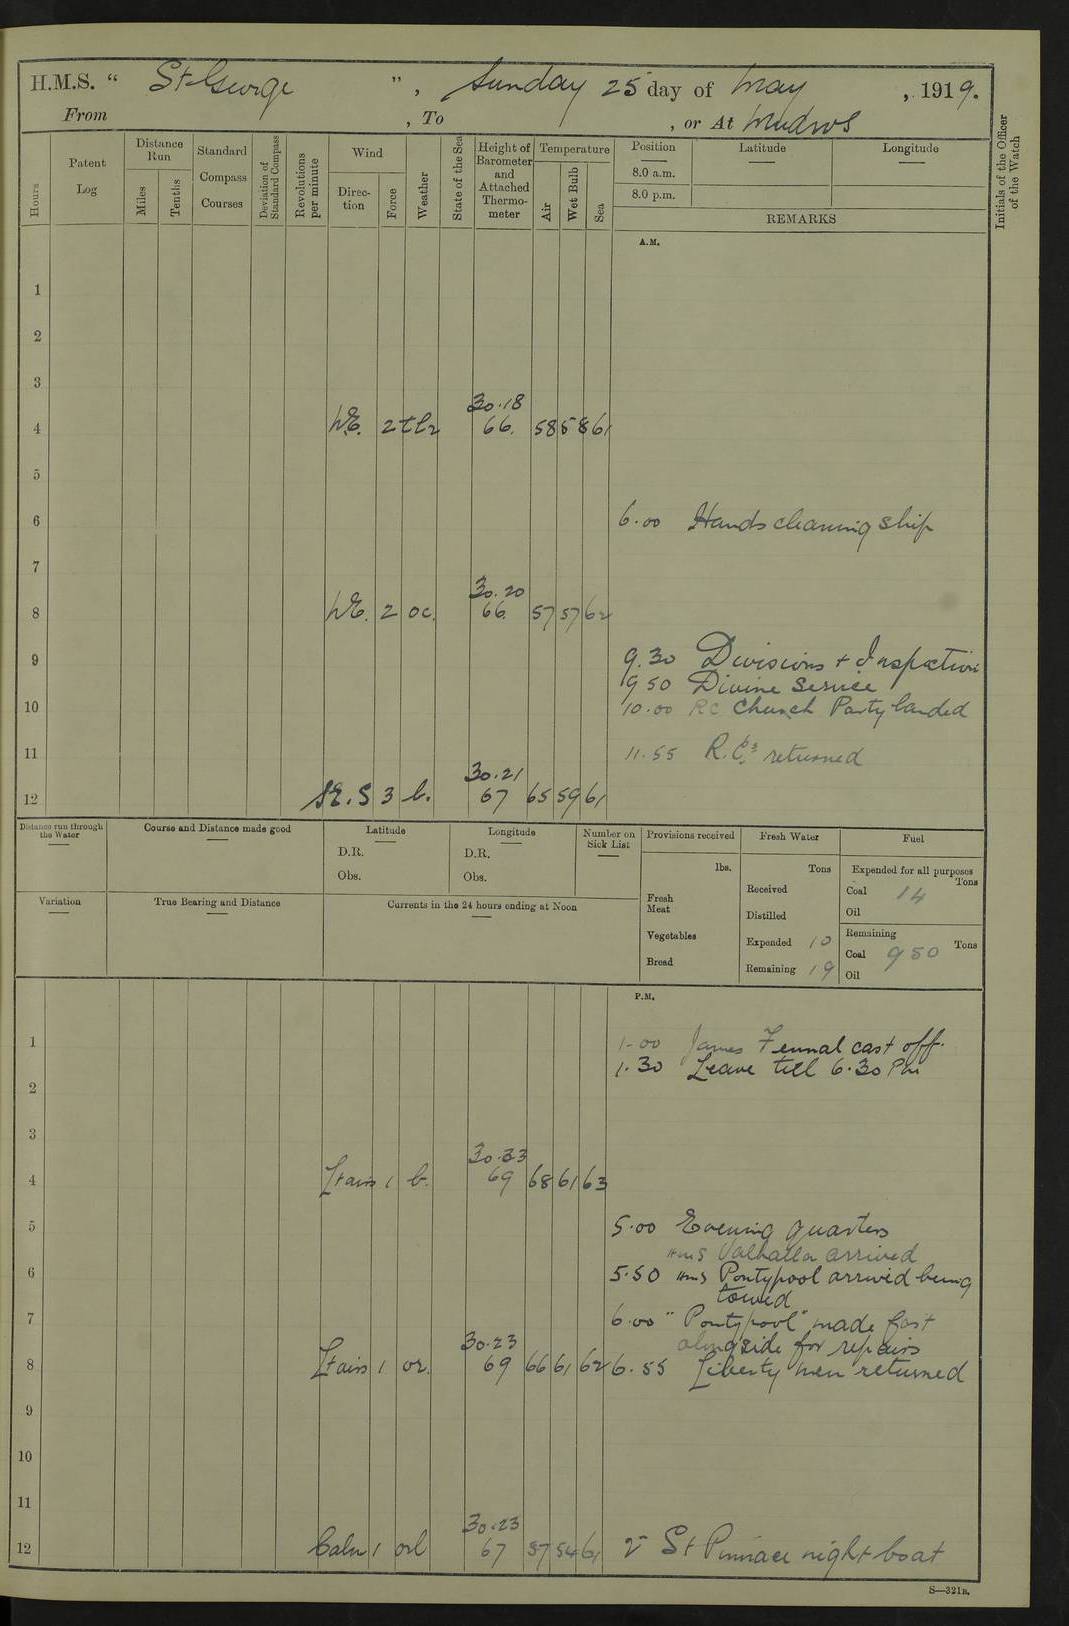 H.M.S. “ St George ”, Sunday 25 day of May, 1919.
From , To , or At Mudros
Hours
Patent Log
Distance Run
Miles
Tenths
Standard Compass Courses
Deviation of Standard Compass
Revolutions per minute
Wind
Direction
Force
Weather
State of the Sea
Height of Barometer and Attached Thermometer
Temperature
Air
Wet Bulb
Sea
Position
Latitude
Longitude
8.0 a.m.
8.0 p.m.
REMARKS
Initials of the Officer of the Watch
A.M.
1
2
3
30.18
4 NE. 2 66. 58 58 61
5
6 6.00 Hands cleaning ship
7
30.20
8 NE. 2 oc. 66. 57 57 62
9 9.30 Divisions + Inspection
9 50 Divine Service
10 10.00 RC Church Party landed
11 11.55 R.C.s returned
30.21
12 3 b. 67 65 59 61
Distance run through the Water
Course and Distance made good
Latitude
D.R.
Obs.
Longitude
D.R.
Obs.
Number on Sick List
Provisions received
lbs.
Fresh Meat
Vegetables
Bread
Fresh Water
Tons
Received
Distilled
Expended 10
Remaining 19
Fuel
Expended for all purposes
Tons
Coal 14
Oil
Remaining
Coal 950 Tons
Oil
Variation
True Bearing and Distance
Currents in the 24 hours ending at Noon
P.M.
1 1-00 James Fennal cast off.
1.30 Leave till 6.30 PM
2
3
30.23
4 Ltairs 1 b. 69 68 61 63
5 5.00 Evening quarters
HMS Valhalla arrived
6 5.50 HMS Pontypool arrived being
towed
7 6.00 "Pontypool" made fast
alongside for repairs
30.23
8 Ltairs 1 69 66 61 62 6.55 Liberty men returned
9
10
11
30.23
12 Calm 1 67 57 54 61 St Pinnace night boat
S—321B.